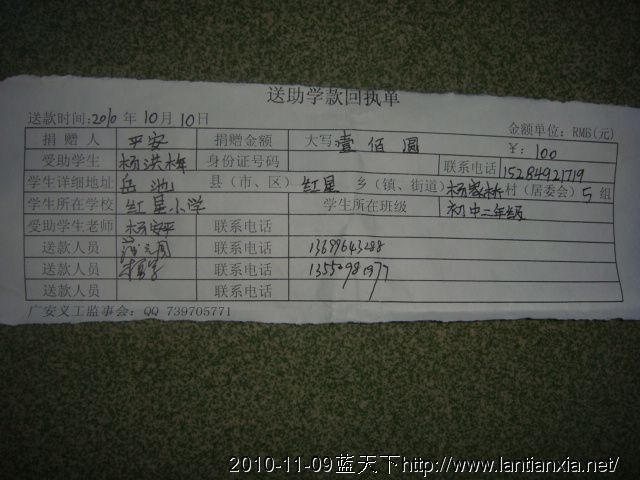 送助学款回执单
送款时间:2010 年 10 月 10 日 金额单位: RMB(元)
捐赠人 平安 捐赠金额 大写 壹佰圆 ¥: 100
受助学生 杨洪梅 身份证号码 联系电话 15284921719
学生详细地址 岳池 县(市、区) 红星 乡(镇、街道) 杨家桥 村(居委会) 5 组
学生所在学校 红星小学 学生所在班级 初中二年级
受助学生老师 杨安平 联系电话
送款人员 联系电话 13699643288
送款人员 联系电话 13550981977
送款人员 联系电话
广安义工监事会: QQ 739705771
2010-11-09蓝天下http://www.lantianxia.net/